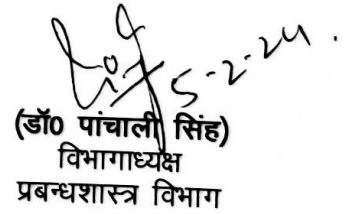 5-2-24.
(डॉ0 पांचाली सिंह)
विभागाध्यक्ष
प्रबन्धशास्त्र विभाग